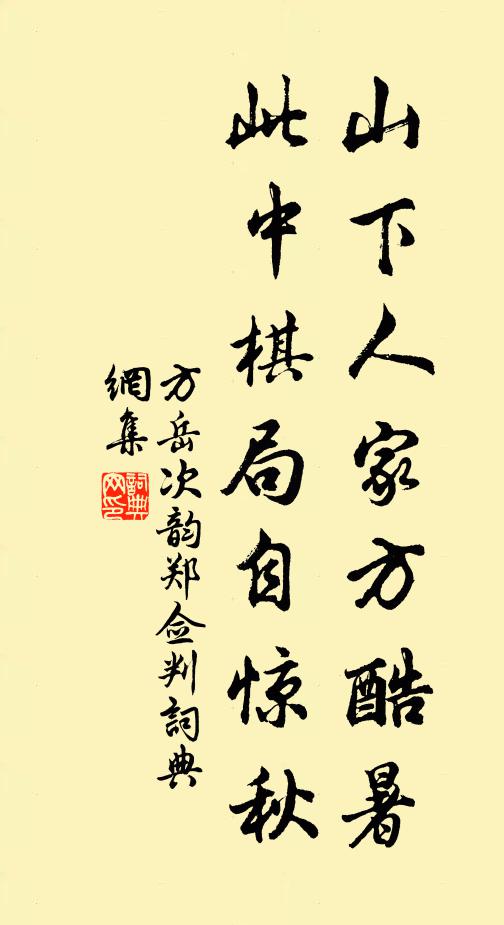 山下人家方酷暑
此中棋局自惊秋
方岳次韵郑佥判詞典
網集
詞典
网印